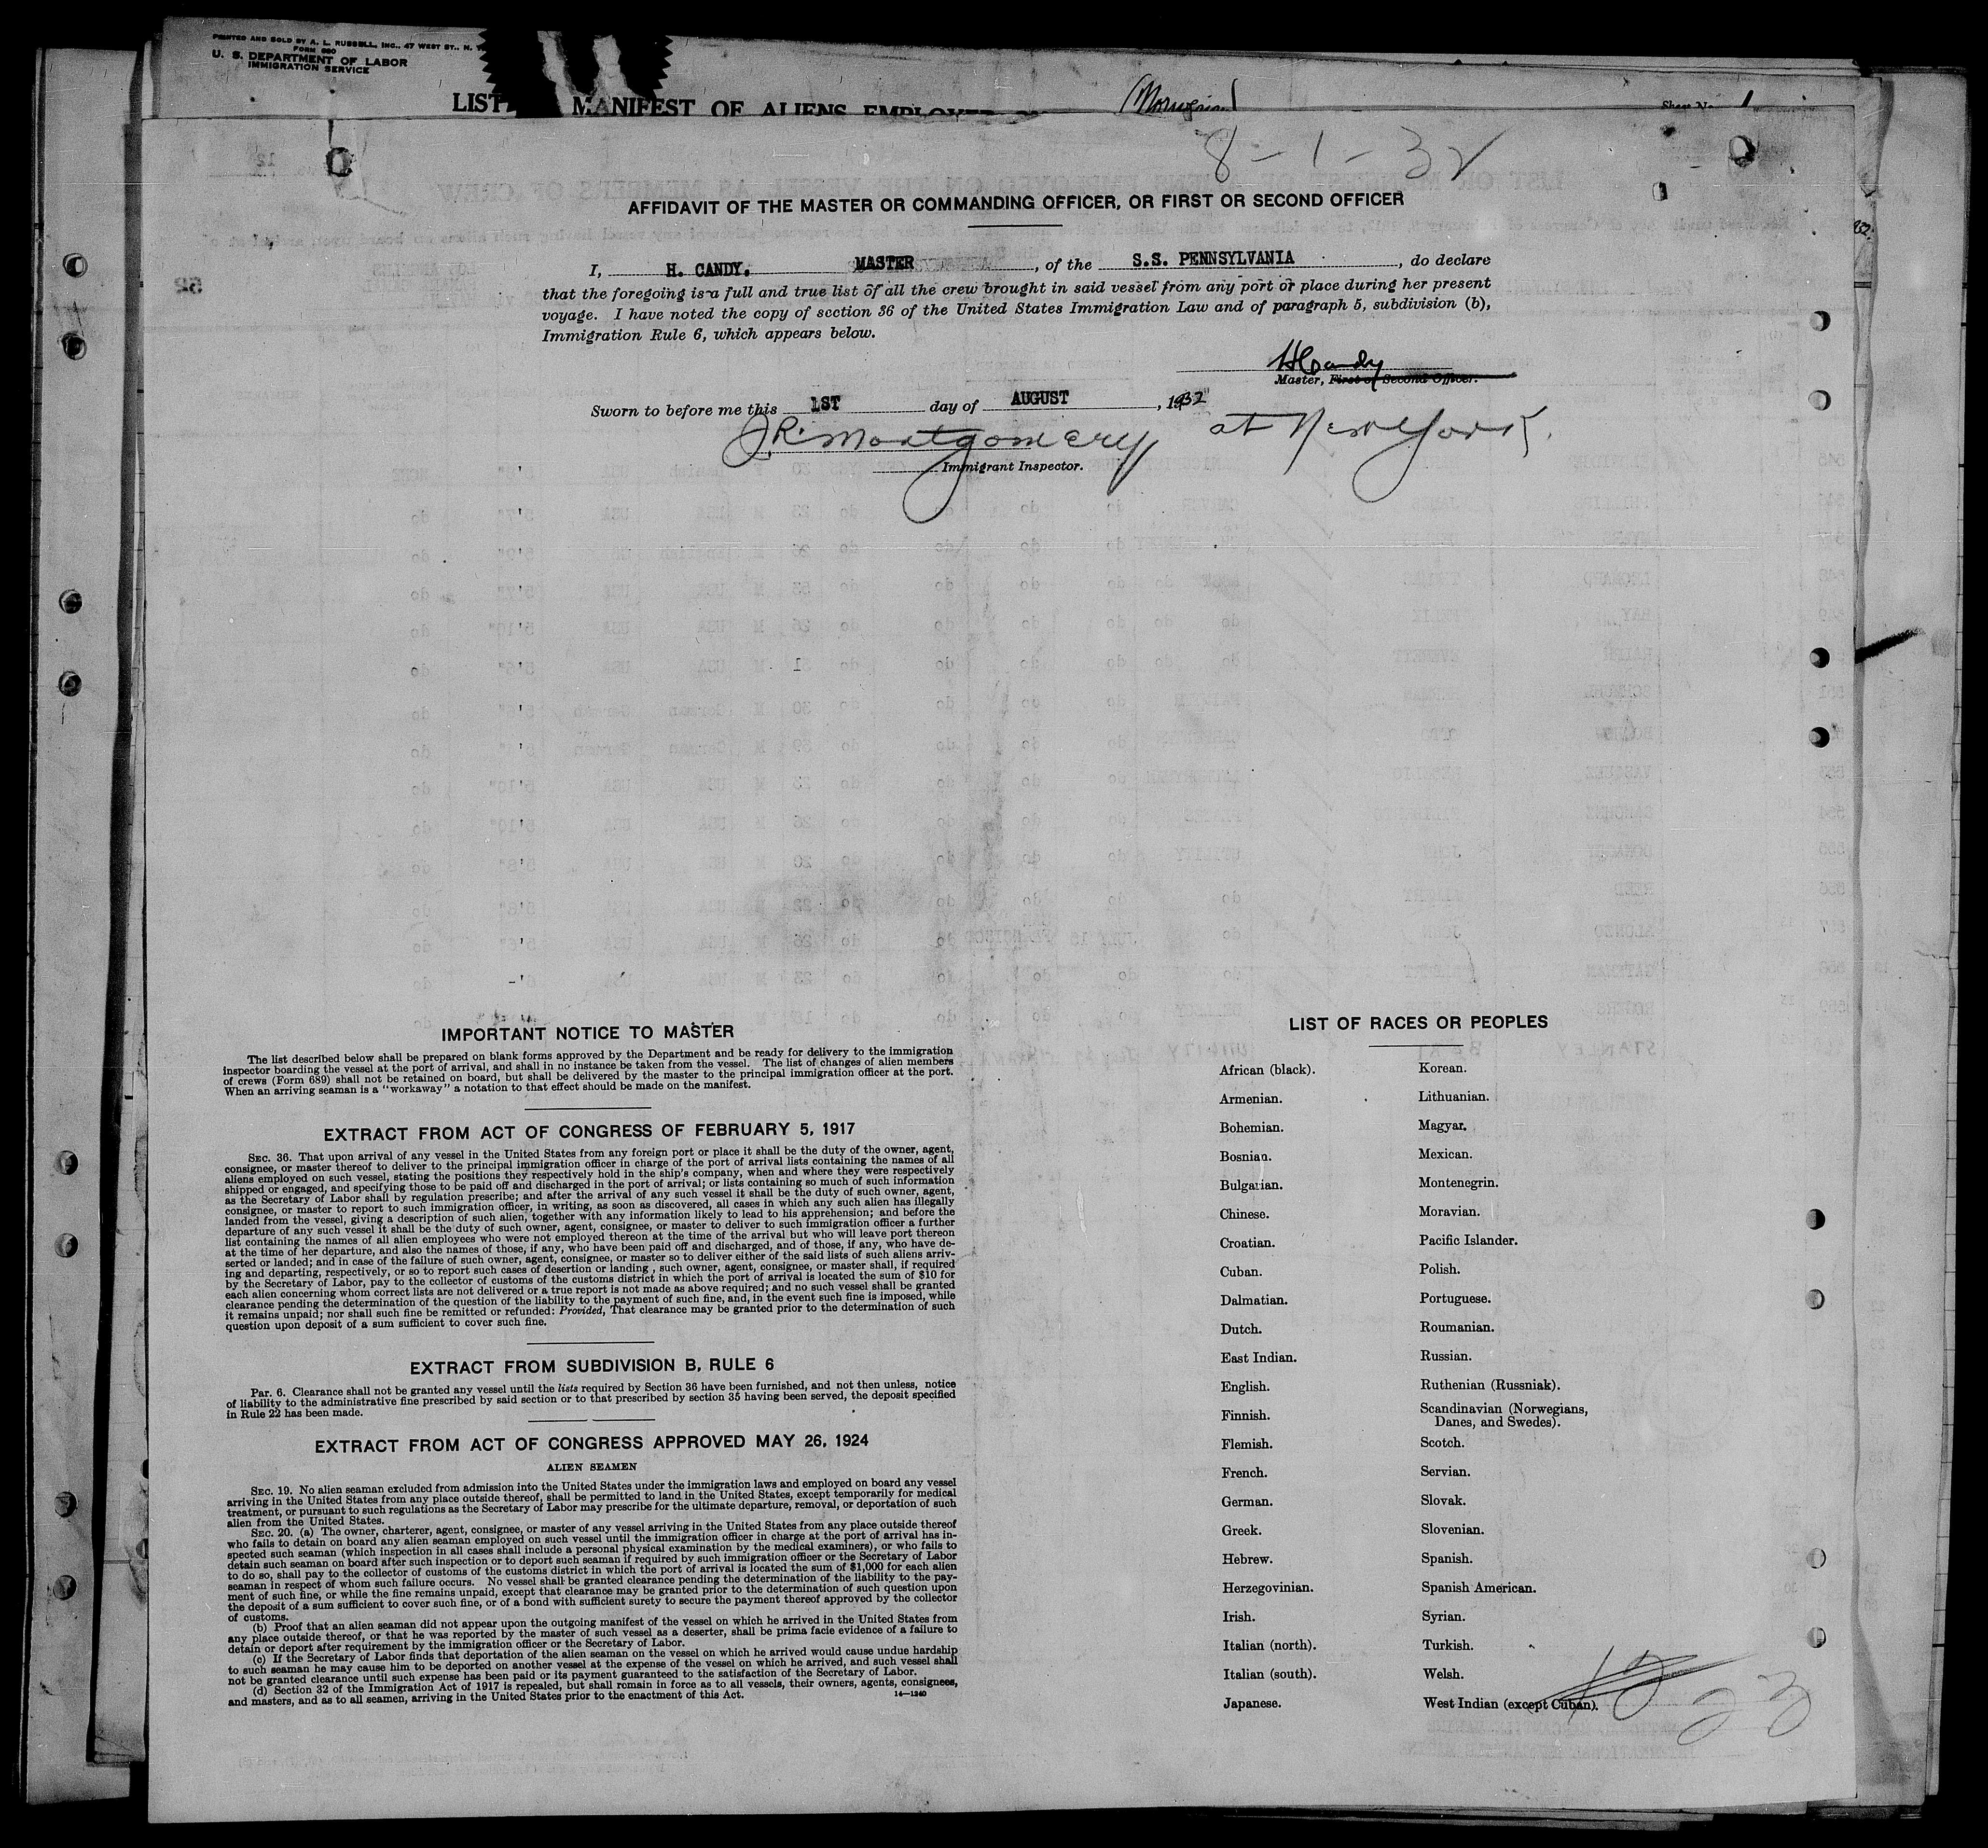 PRINTED AND SOLD BY A. L. RUSSELL, INC., 47 WEST ST., N. Y.
FORM 680
U. S. DEPARTMENT OF LABOR
IMMIGRATION SERVICE
LIST MANIFEST OF ALIENS EMPLOYED
(Norwegian)
Sheet No. 1
8-1-32
AFFIDAVIT OF THE MASTER OR COMMANDING OFFICER, OR FIRST OR SECOND OFFICER
I, H. CANDY. MASTER, of the S.S. PENNSYLVANIA, do declare
that the foregoing is a full and true list of all the crew brought in said vessel from any port or place during her present
voyage. I have noted the copy of section 36 of the United States Immigration Law and of paragraph 5, subdivision (b),
Immigration Rule 6, which appears below.
H Candy
Master, First or Second Officer.
Sworn to before me this 1ST day of AUGUST, 1932
J.R. Montgomery at New York.
Immigrant Inspector.
IMPORTANT NOTICE TO MASTER
The list described below shall be prepared on blank forms approved by the Department and be ready for delivery to the immigration
inspector boarding the vessel at the port of arrival, and shall in no instance be taken from the vessel. The list of changes of alien members
of crews (Form 689) shall not be retained on board, but shall be delivered by the master to the principal immigration officer at the port.
When an arriving seaman is a "workaway" a notation to that effect should be made on the manifest.
EXTRACT FROM ACT OF CONGRESS OF FEBRUARY 5, 1917
SEC. 36. That upon arrival of any vessel in the United States from any foreign port or place it shall be the duty of the owner, agent,
consignee, or master thereof to deliver to the principal immigration officer in charge of the port of arrival lists containing the names of all
aliens employed on such vessel, stating the positions they respectively hold in the ship's company, when and where they were respectively
shipped or engaged, and specifying those to be paid off and discharged in the port of arrival; or lists containing so much of such information
as the Secretary of Labor shall by regulation prescribe; and after the arrival of any such vessel it shall be the duty of such owner, agent,
consignee, or master to report to such immigration officer, in writing, as soon as discovered, all cases in which any such alien has illegally
landed from the vessel, giving a description of such alien, together with any information likely to lead to his apprehension; and before the
departure of any such vessel it shall be the duty of such owner, agent, consignee, or master to deliver to such immigration officer a further
list containing the names of all alien employees who were not employed thereon at the time of the arrival but who will leave port thereon
at the time of her departure, and also the names of those, if any, who have been paid off and discharged, and of those, if any, who have de-
serted or landed; and in case of the failure of such owner, agent, consignee, or master so to deliver either of the said lists of such aliens arriv-
ing and departing, respectively, or so to report such cases of desertion or landing, such owner, agent, consignee, or master shall, if required
by the Secretary of Labor, pay to the collector of customs of the customs district in which the port of arrival is located the sum of $10 for
each alien concerning whom correct lists are not delivered or a true report is not made as above required; and no such vessel shall be granted
clearance pending the determination of the question of the liability to the payment of such fine, and, in the event such fine is imposed, while
it remains unpaid; nor shall such fine be remitted or refunded: Provided, That clearance may be granted prior to the determination of such
question upon deposit of a sum sufficient to cover such fine.
EXTRACT FROM SUBDIVISION B, RULE 6
Par. 6. Clearance shall not be granted any vessel until the lists required by Section 36 have been furnished, and not then unless, notice
of liability to the administrative fine prescribed by said section or to that prescribed by section 35 having been served, the deposit specified
in Rule 22 has been made.
EXTRACT FROM ACT OF CONGRESS APPROVED MAY 26, 1924
ALIEN SEAMEN
SEC. 19. No alien seaman excluded from admission into the United States under the immigration laws and employed on board any vessel
arriving in the United States from any place outside thereof, shall be permitted to land in the United States, except temporarily for medical
treatment, or pursuant to such regulations as the Secretary of Labor may prescribe for the ultimate departure, removal, or deportation of such
alien from the United States.
SEC. 20. (a) The owner, charterer, agent, consignee, or master of any vessel arriving in the United States from any place outside thereof
who fails to detain on board any alien seaman employed on such vessel until the immigration officer in charge at the port of arrival has in-
spected such seaman (which inspection in all cases shall include a personal physical examination by the medical examiners), or who fails to
detain such seaman on board after such inspection or to deport such seaman if required by such immigration officer or the Secretary of Labor
to do so, shall pay to the collector of customs of the customs district in which the port of arrival is located the sum of $1,000 for each alien
seaman in respect of whom such failure occurs. No vessel shall be granted clearance pending the determination of the liability to the pay-
ment of such fine, or while the fine remains unpaid, except that clearance may be granted prior to the determination of such question upon
the deposit of a sum sufficient to cover such fine, or of a bond with sufficient surety to secure the payment thereof approved by the collector
of customs.
(b) Proof that an alien seaman did not appear upon the outgoing manifest of the vessel on which he arrived in the United States from
any place outside thereof, or that he was reported by the master of such vessel as a deserter, shall be prima facie evidence of a failure to
detain or deport after requirement by the immigration officer or the Secretary of Labor.
(c) If the Secretary of Labor finds that deportation of the alien seaman on the vessel on which he arrived would cause undue hardship
to such seaman he may cause him to be deported on another vessel at the expense of the vessel on which he arrived, and such vessel shall
not be granted clearance until such expense has been paid or its payment guaranteed to the satisfaction of the Secretary of Labor.
(d) Section 32 of the Immigration Act of 1917 is repealed, but shall remain in force as to all vessels, their owners, agents, consignees,
and masters, and as to all seamen, arriving in the United States prior to the enactment of this Act. 14—1240
LIST OF RACES OR PEOPLES
African (black). Korean.
Armenian. Lithuanian.
Bohemian. Magyar.
Bosnian. Mexican.
Bulgarian. Montenegrin.
Chinese. Moravian.
Croatian. Pacific Islander.
Cuban. Polish.
Dalmatian. Portuguese.
Dutch. Roumanian.
East Indian. Russian.
English. Ruthenian (Russniak).
Finnish. Scandinavian (Norwegians,
Danes, and Swedes).
Flemish. Scotch.
French. Servian.
German. Slovak.
Greek. Slovenian.
Hebrew. Spanish.
Herzegovinian. Spanish American.
Irish. Syrian.
Italian (north). Turkish.
Italian (south). Welsh.
Japanese. West Indian (except Cuban).
23